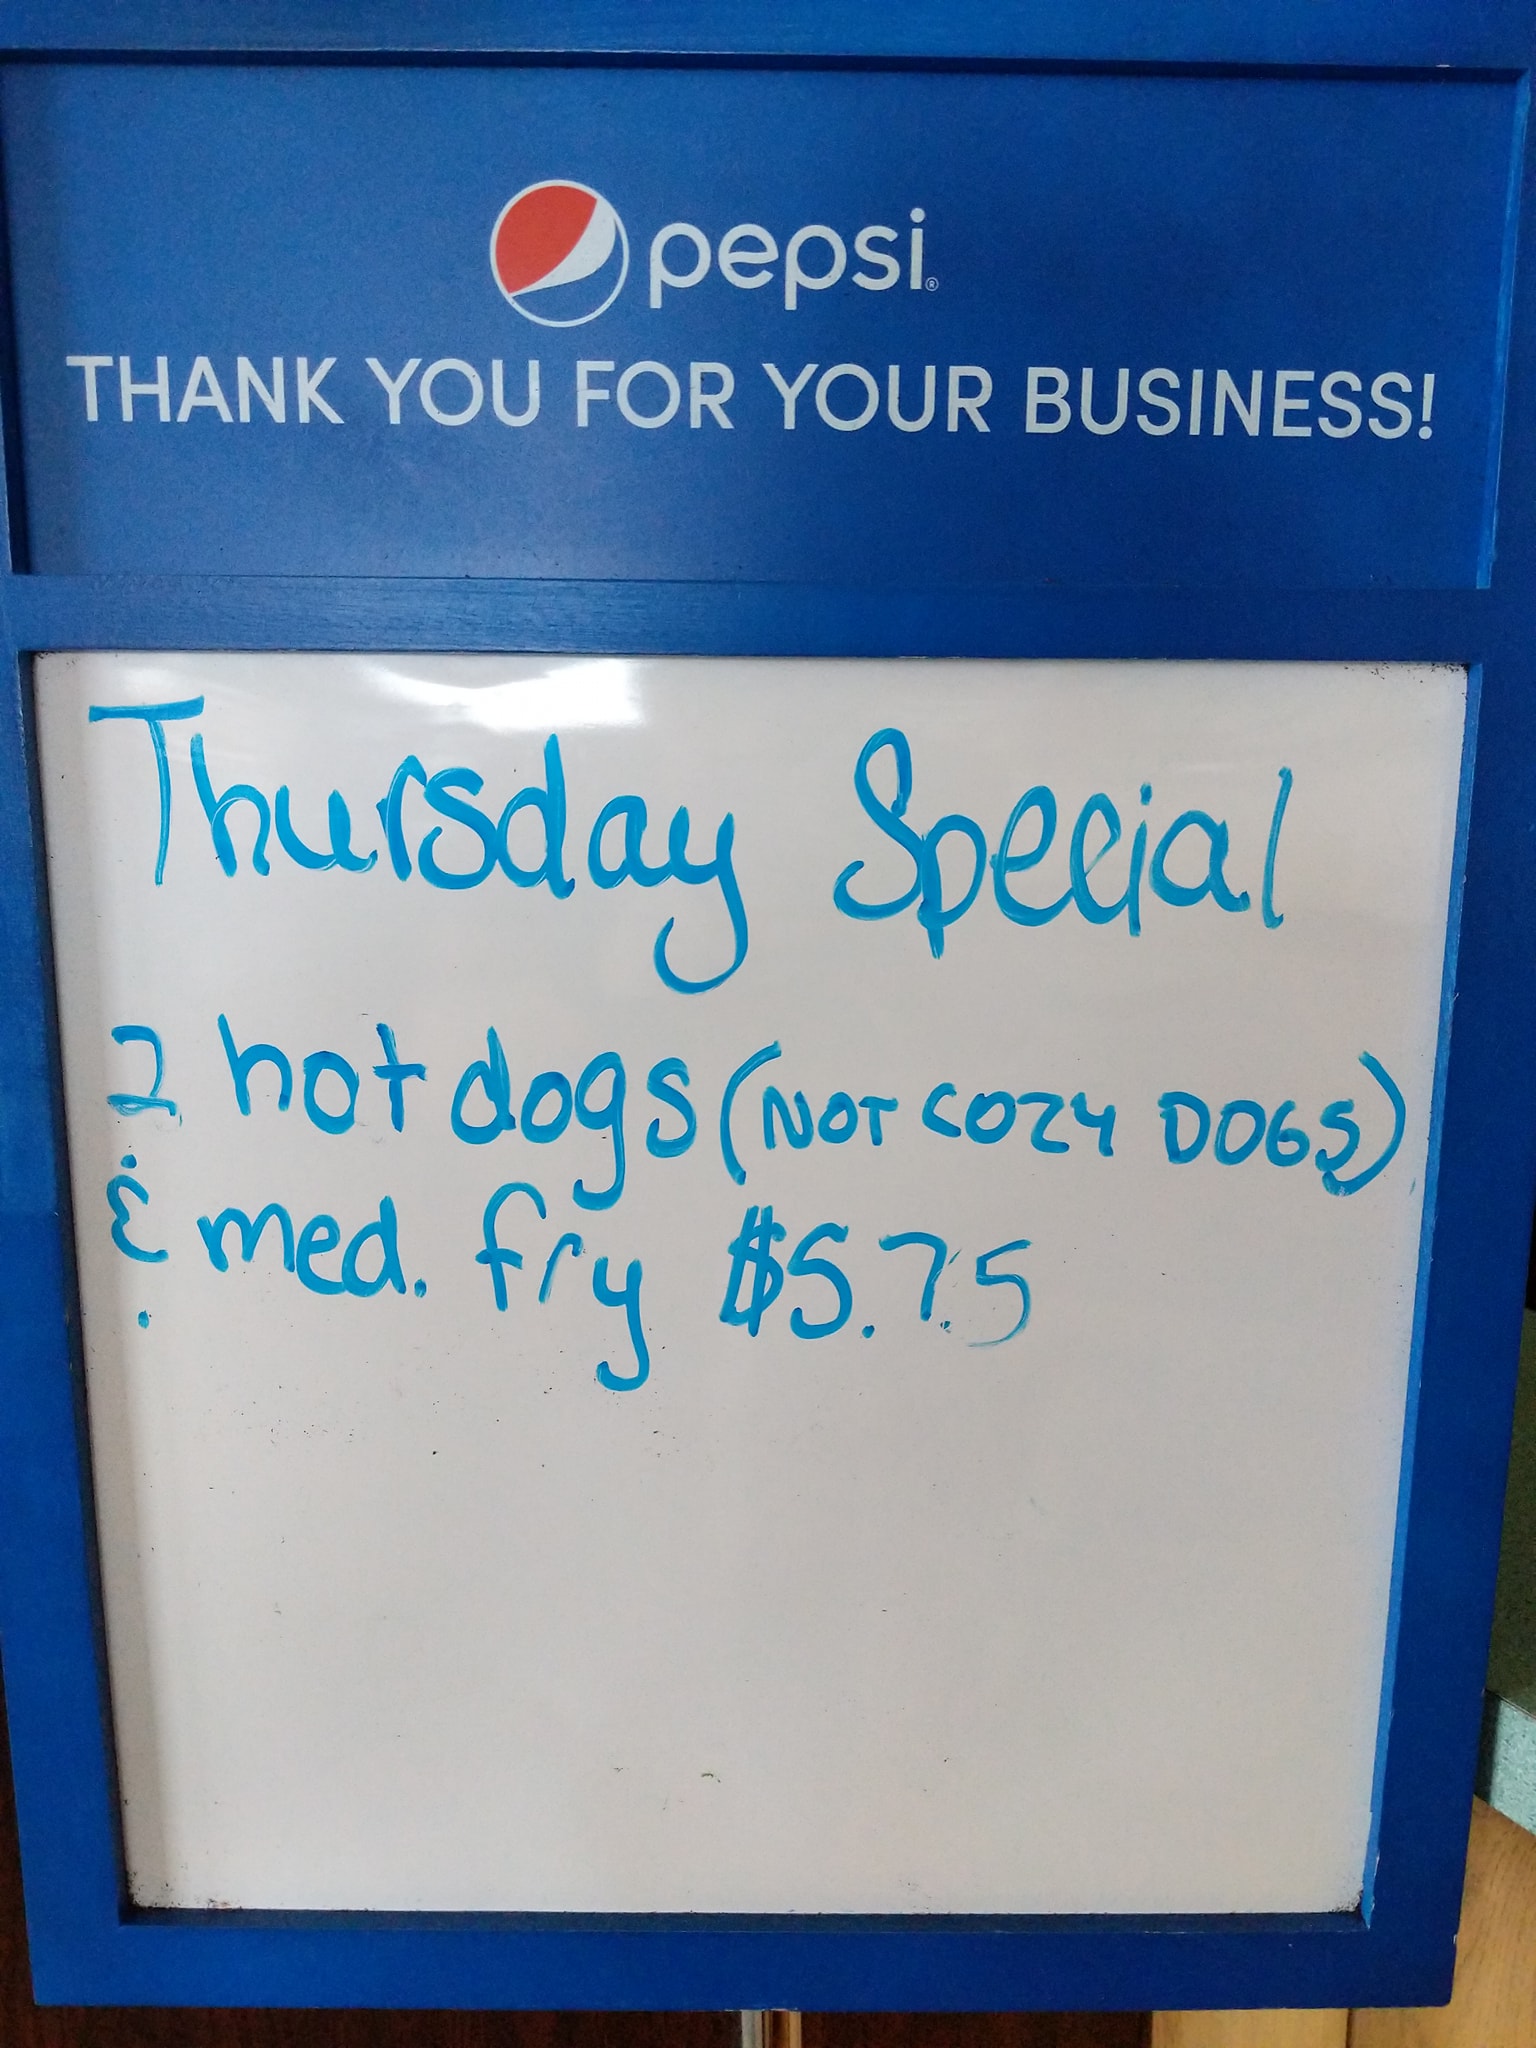 pepsi®
THANK YOU FOR YOUR BUSINESS!
Thursday Special
2 hot dogs (NOT COZY DOGS)
& med. fry $5.75